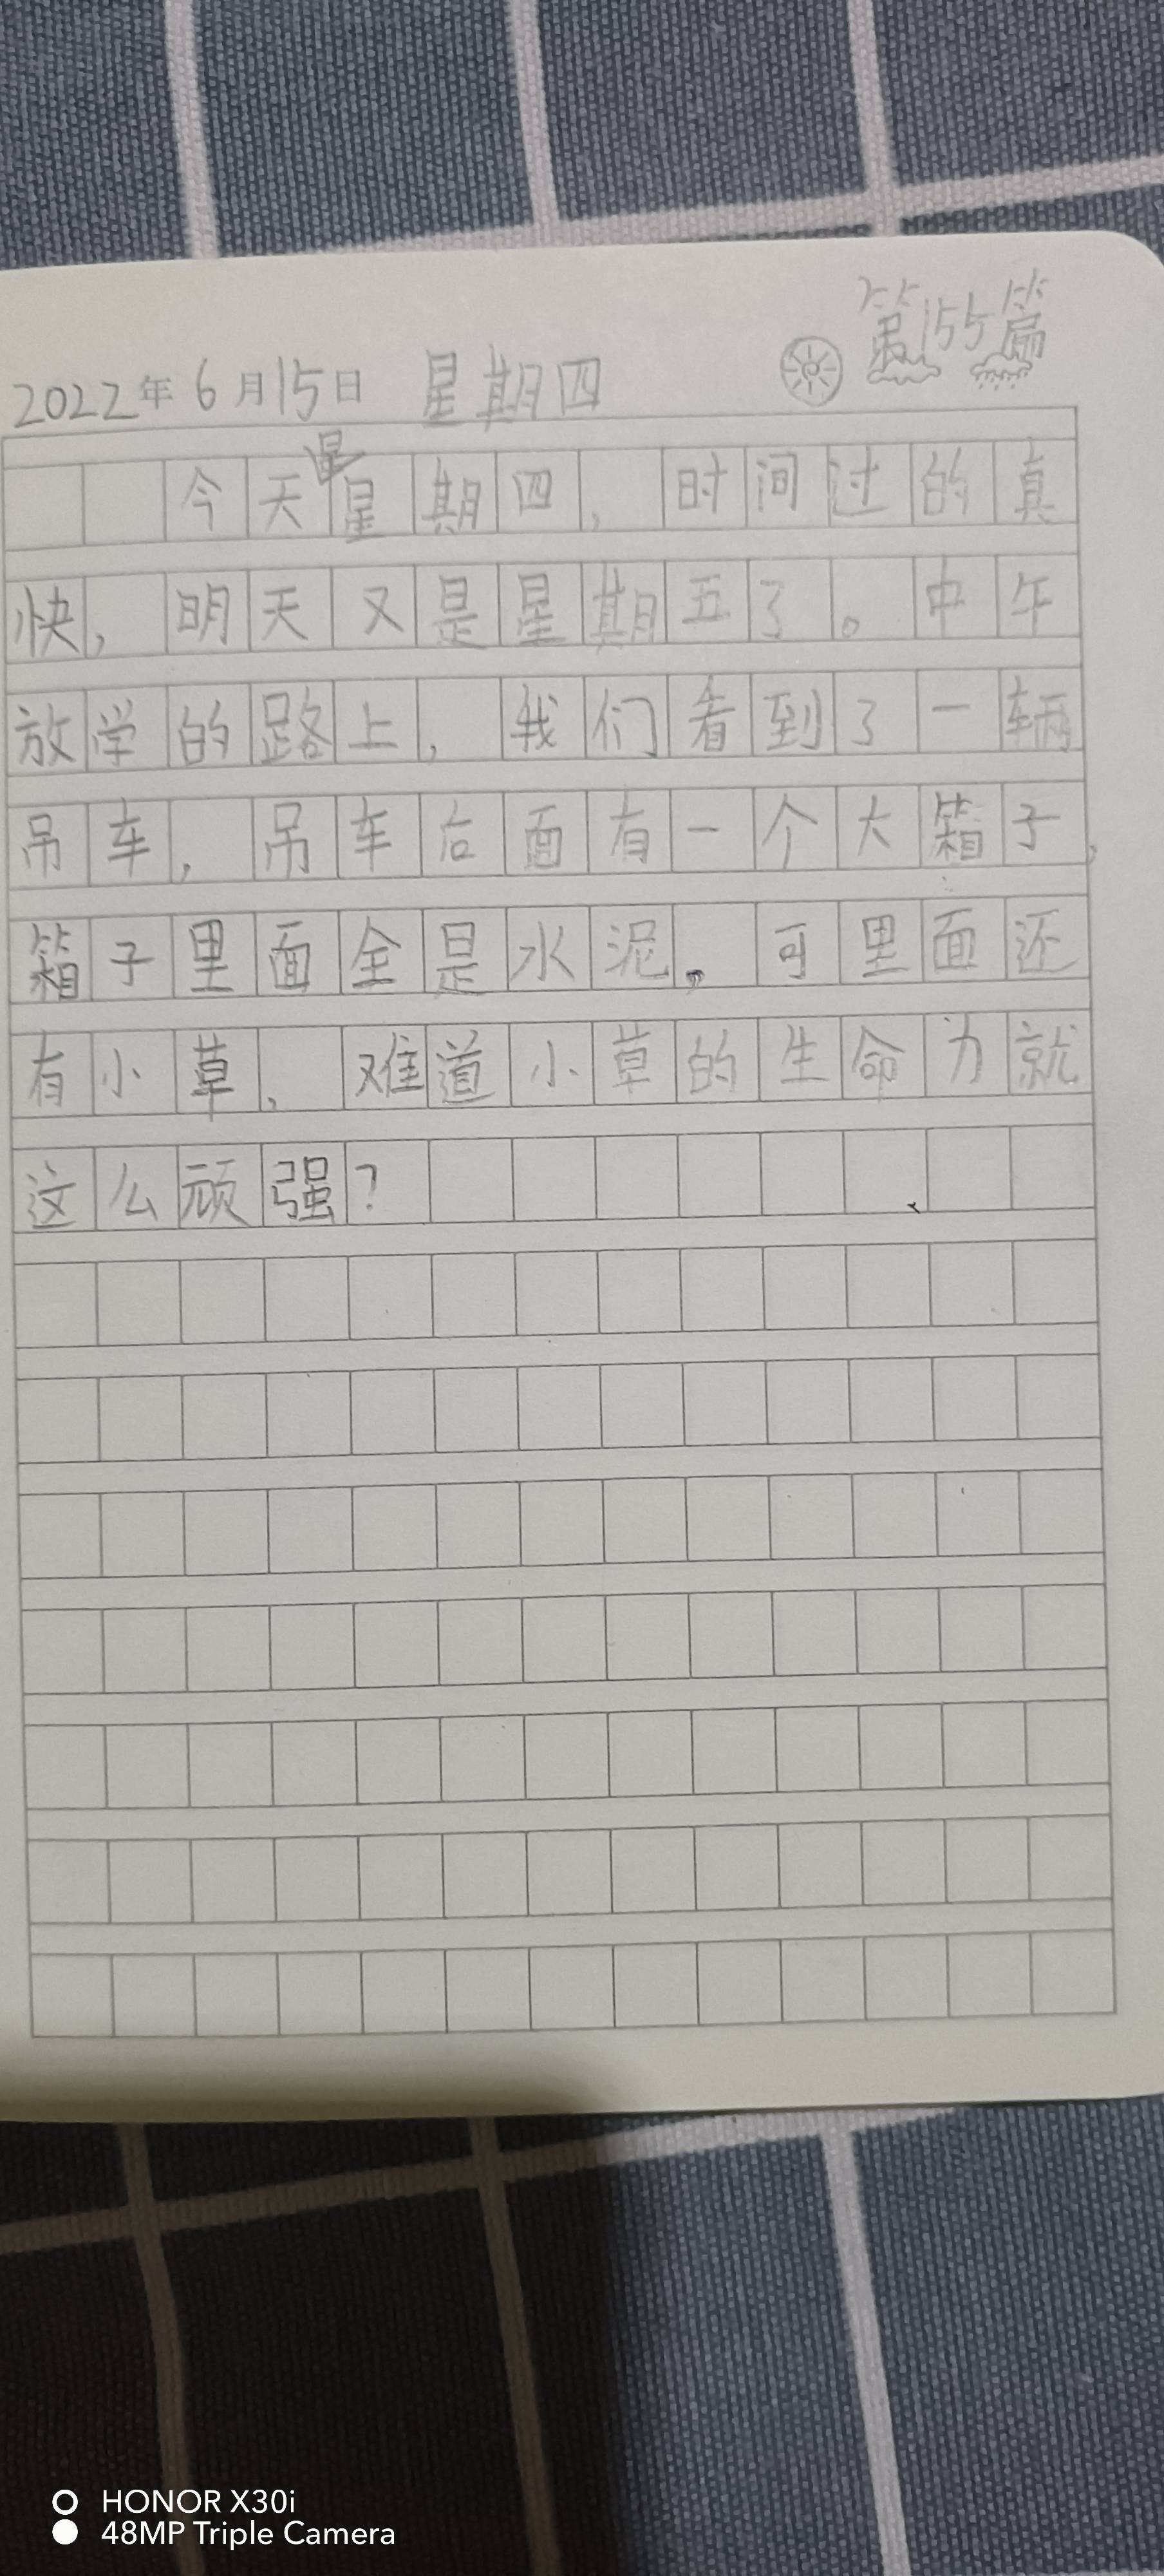 第155篇
2022年6月15日 星期四
今天是星期四，时间过的真
快，明天又是星期五了。中午
放学的路上，我们看到了一辆
吊车，吊车后面有一个大箱子，
箱子里面全是水泥。可里面还
有小草，难道小草的生命力就
这么顽强？
HONOR X30i
48MP Triple Camera